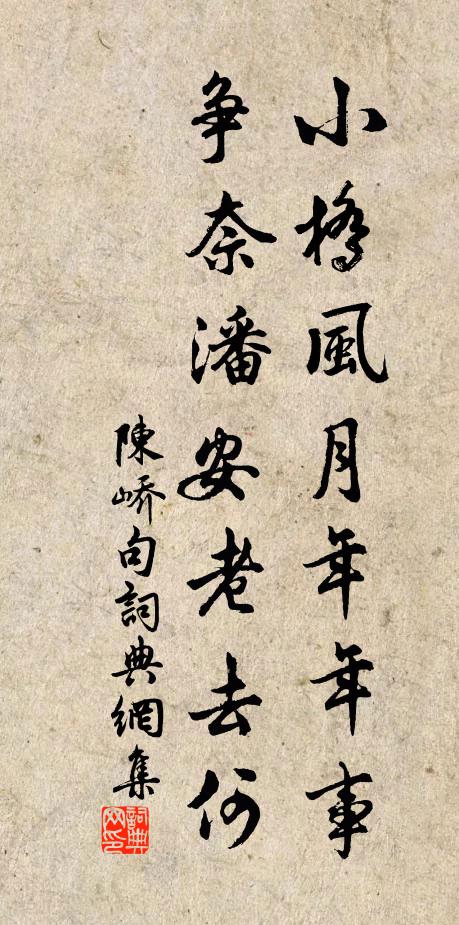 小橋風月年年事
爭奈潘安老去何
陳嶠句詞典網集
詞典网印